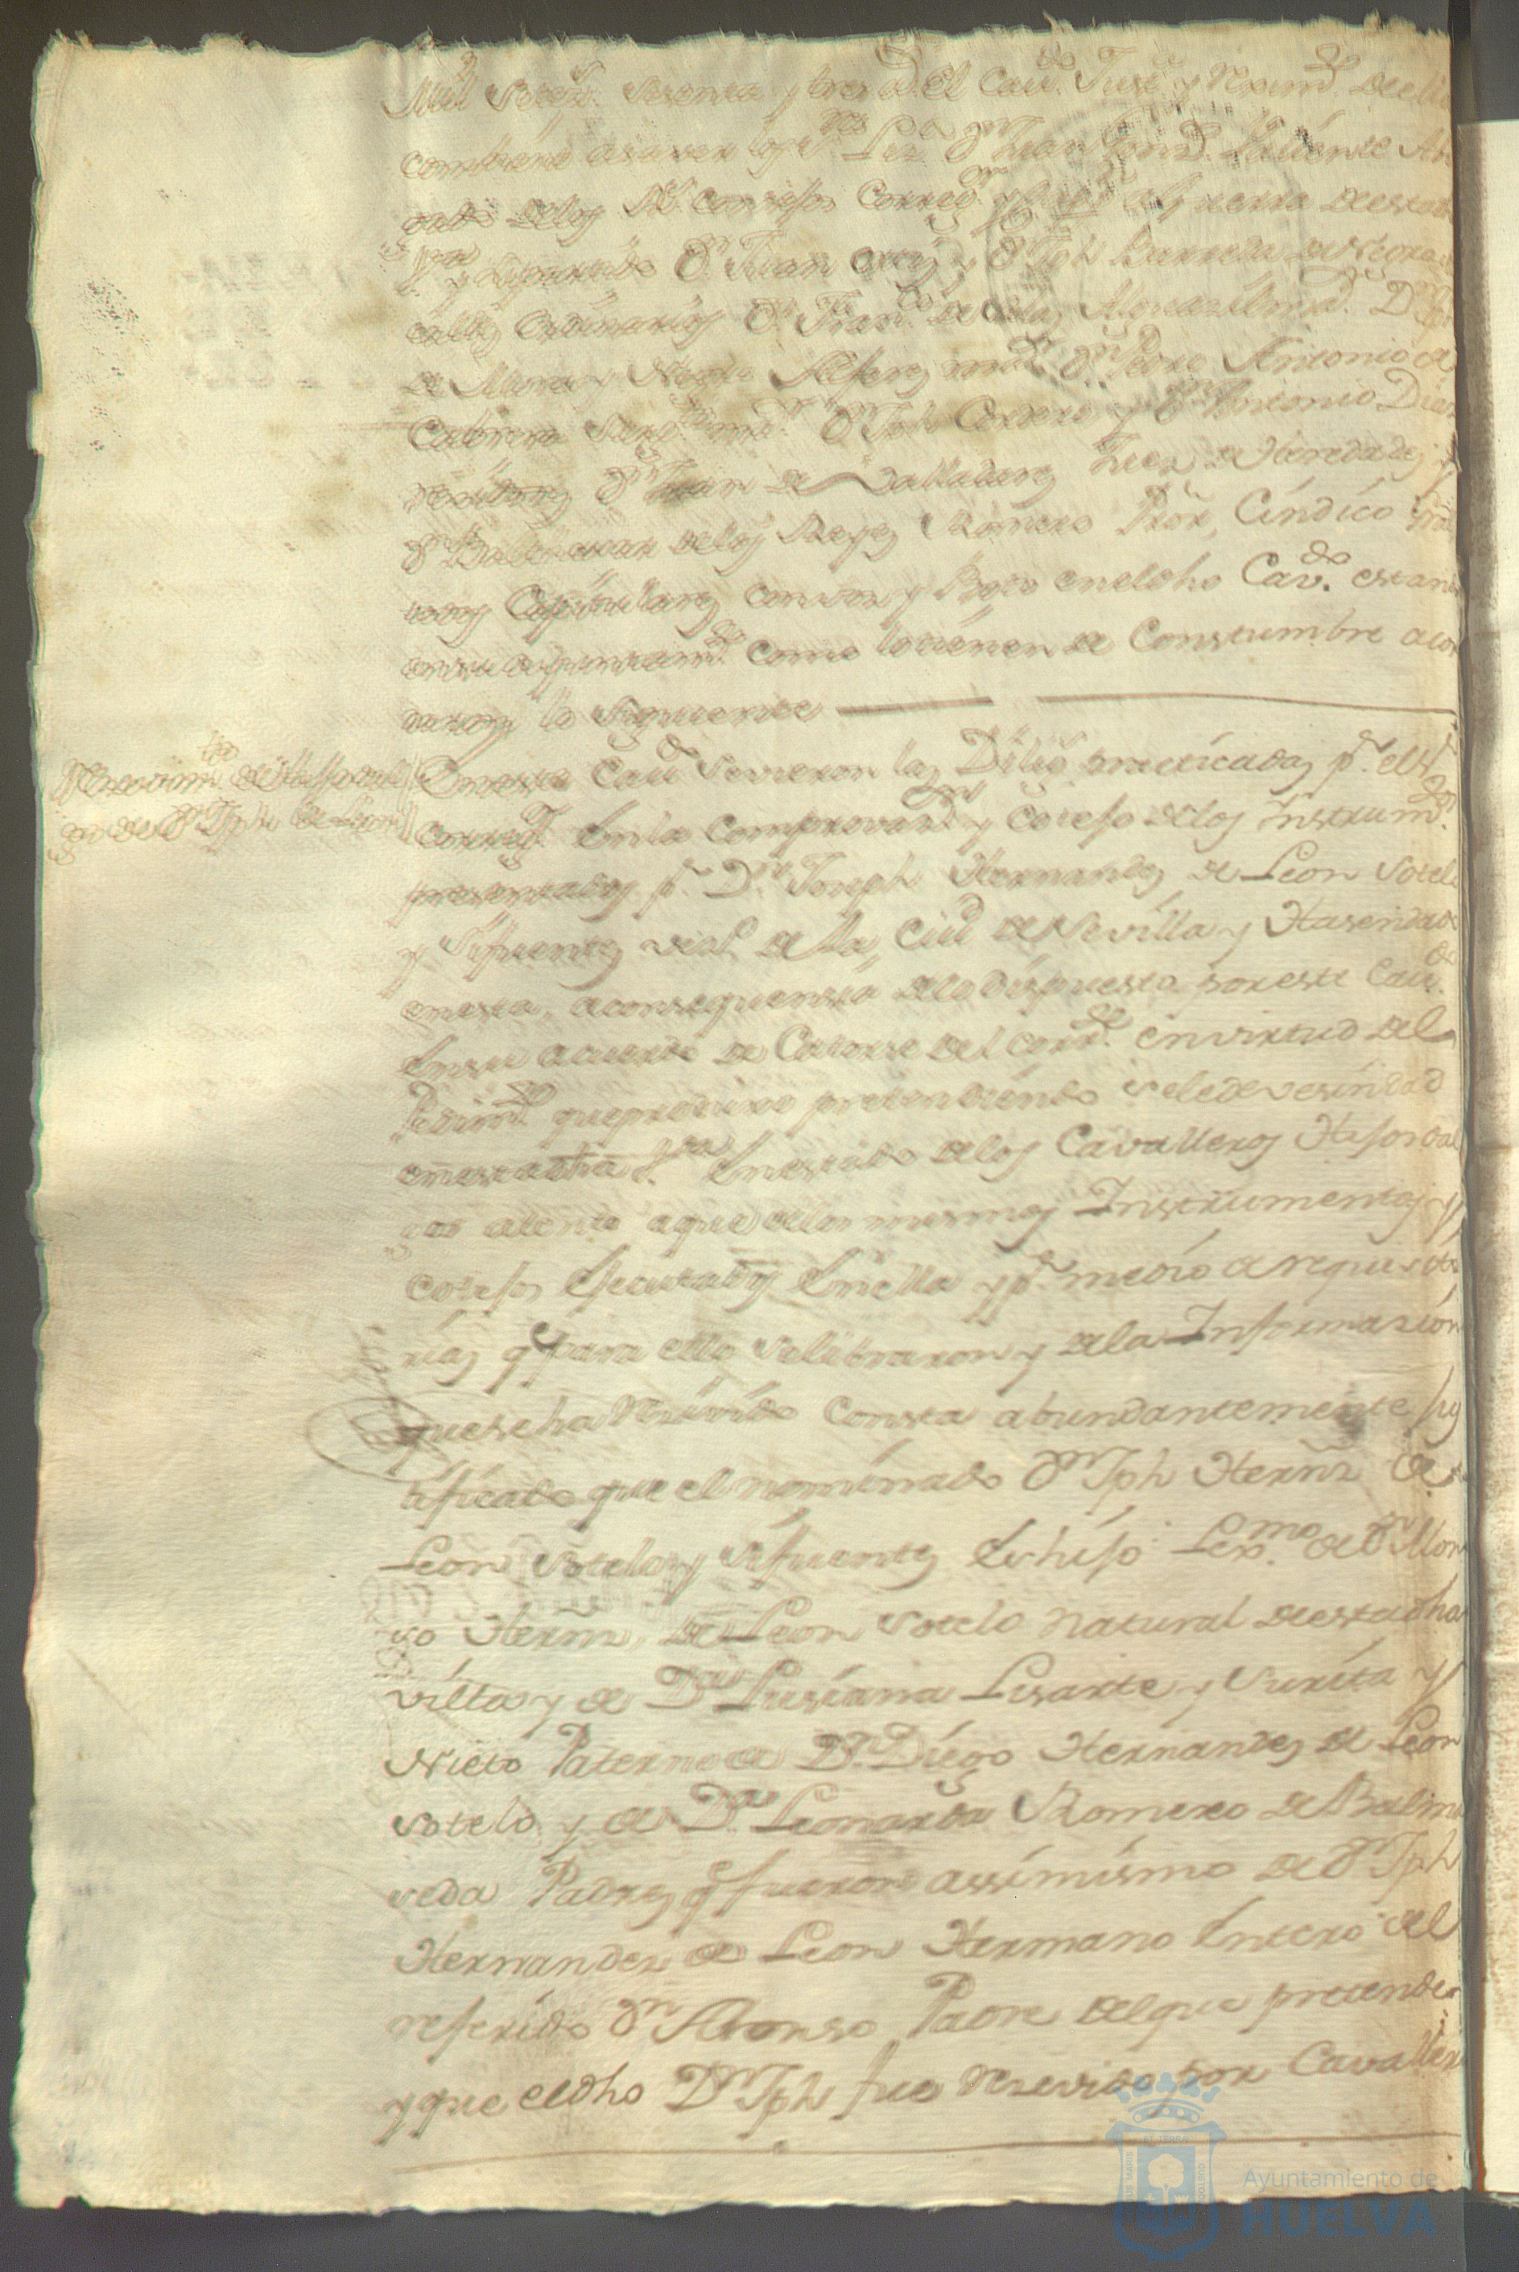 Mill Setez. Sesenta y tres a.s El Cau.do Just.a y Reximto. de ella
combiene asaver los S.res Liz.do Dn Juan Gonz. Valiente Abo
gado delos Rs. Consejos Correg.or
Dn Juan Dn Jph Barreda
Ordinarios Dn Fran.co
de Mora y Negro Alferez mor. Dn Pedro Antonio de
Cabrera Dn Jph Correa y Dn Antonio Diaz
Rexidores Dn Juan de Valladarez Juez de Heredades y
Dn Balthazar delos Reyes Romero Pror, Cindico
todos Capitulares con vos y Boto eneldho Cav.do estando
ensu aiuntamto. como lo tienen de Constumbre acor
daron lo siguiente
Rezevimto. de Hijosdal
go de Dn Jph de Leon
Eneste Cau.do se vieron las Dilixs. practicadas pr. el Sr.
Correxor. en la comprovaon. y Cotejo delos Instrumtos.
presentados pr. Dn. Joseph Hernandez de Leon Sotelo
y Sifuentes vesº. de La Ciud de Sevilla y Hasendado
enesta, aconsequensia delo dispuesto por este Cau.do
ensu acuerdo de Catorse del corrte. en virtud del
Pedimto. que produxo pretendiendo sele de vesindad
enestadha Va. enestado delos Cavalleros Hijosdal
gos atento aque delos mismos Instrumentos y
cotejos Ejecutados en ella y pr. medio de requisito
rias q para ello se libraron y dela Informazion
queseha Rezivido consta abundantemente jus
tificado que el nominado Dn Jph Hernz de
Leon Sotelo y Sifuentes es hijo Lexmo. de Dn Alon
so Hernz. de Leon Sotelo natural deestadha
villa y de Da. Lusiana Lisarte y Surita y
Nieto Paterno de Dn. Diego Hernandez de Leon
Sotelo y de Da. Leonarda Romero de Balma
seda Padres q fueron assimismo de Dn Jph
Hernandez de Leon Hermano Entero del
referido Dn Alonso Padre delque pretende
y que eldho Dn Jph fue Rezevido por Cavallero
Ayuntamiento de
HUELVA